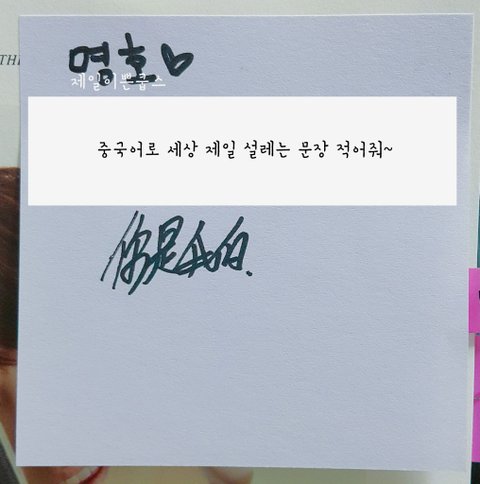 TH
명호♡
제일이쁜쿱스
중국어로 세상 제일 설레는 문장 적어줘~
你是我的.